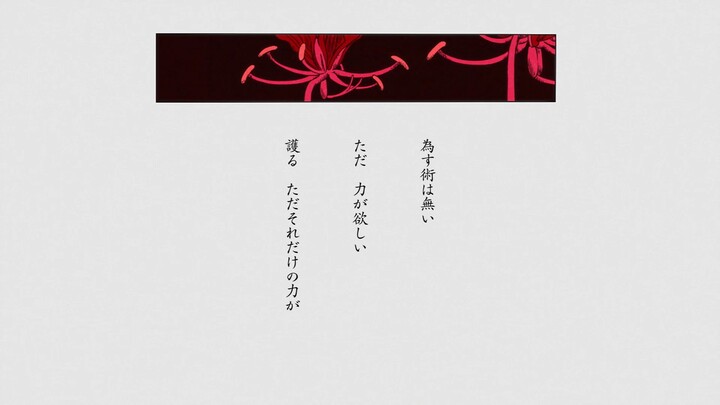 為す術は無い
ただ 力が欲しい
護る ただそれだけの力が